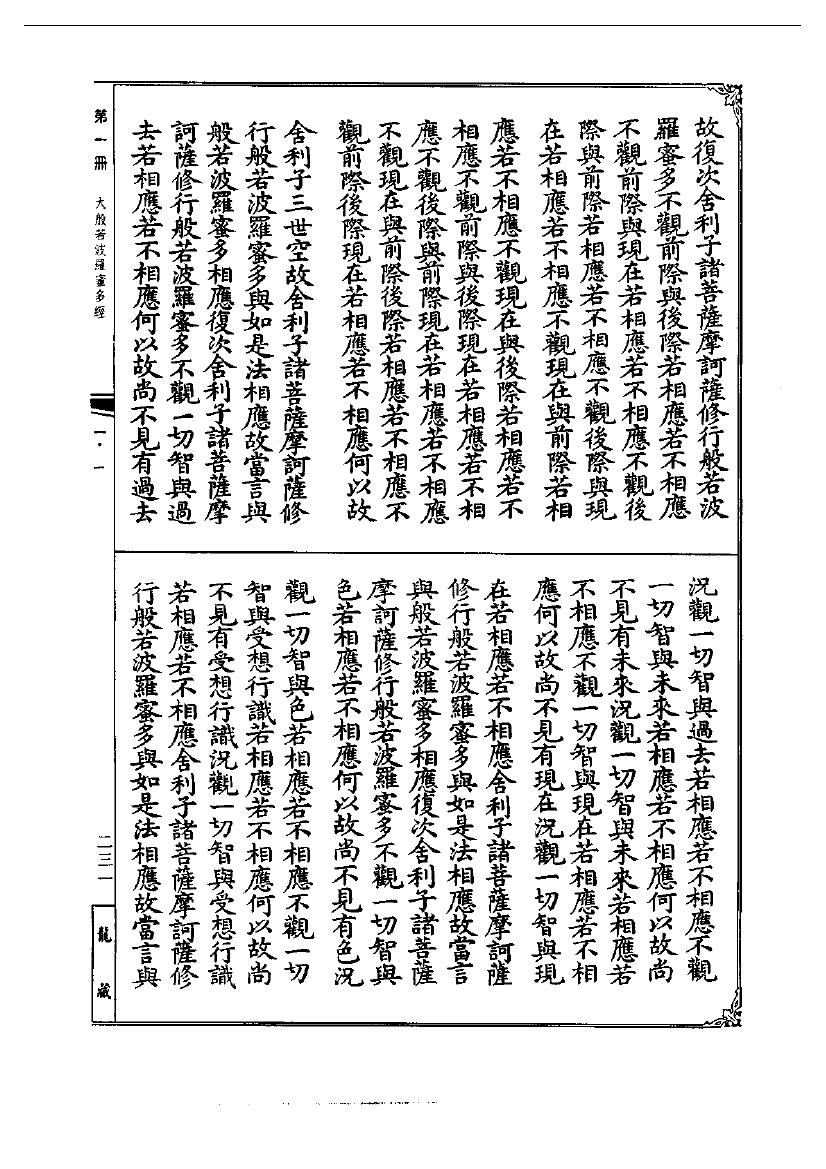 故復次舍利子諸菩薩摩訶薩修行般若波
羅蜜多不觀前際與後際若相應若不相應
不觀前際與現在若相應若不相應不觀後
際與前際若相應若不相應不觀後際與現
在若相應若不相應不觀現在與前際若相
應若不相應不觀現在與後際若相應若不
相應不觀前際與後際現在若相應若不相
應不觀後際與前際現在若相應若不相應
不觀現在與前際後際若相應若不相應不
觀前際後際現在若相應若不相應何以故
舍利子三世空故舍利子諸菩薩摩訶薩修
行般若波羅蜜多與如是法相應故當言與
般若波羅蜜多相應復次舍利子諸菩薩摩
訶薩修行般若波羅蜜多不觀一切智與過
去若相應若不相應何以故尚不見有過去
況觀一切智與過去若相應若不相應不觀
一切智與未來若相應若不相應何以故尚
不見有未來況觀一切智與未來若相應若
不相應不觀一切智與現在若相應若不相
應何以故尚不見有現在況觀一切智與現
在若相應若不相應舍利子諸菩薩摩訶薩
修行般若波羅蜜多與如是法相應故當言
與般若波羅蜜多相應復次舍利子諸菩薩
摩訶薩修行般若波羅蜜多不觀一切智與
色若相應若不相應何以故尚不見有色況
觀一切智與色若相應若不相應不觀一切
智與受想行識若相應若不相應何以故尚
不見有受想行識況觀一切智與受想行識
若相應若不相應舍利子諸菩薩摩訶薩修
行般若波羅蜜多與如是法相應故當言與
第一冊 大般若波羅蜜多經
一·一
二三一
龍藏